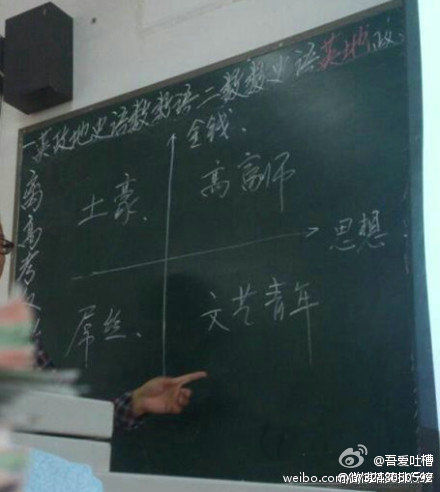 一英政地史语数数语二数数史语英地政
金钱
土豪、
高富师
思想
屌丝、
文艺青年
离高考
吾爱吐槽
weibo.com/